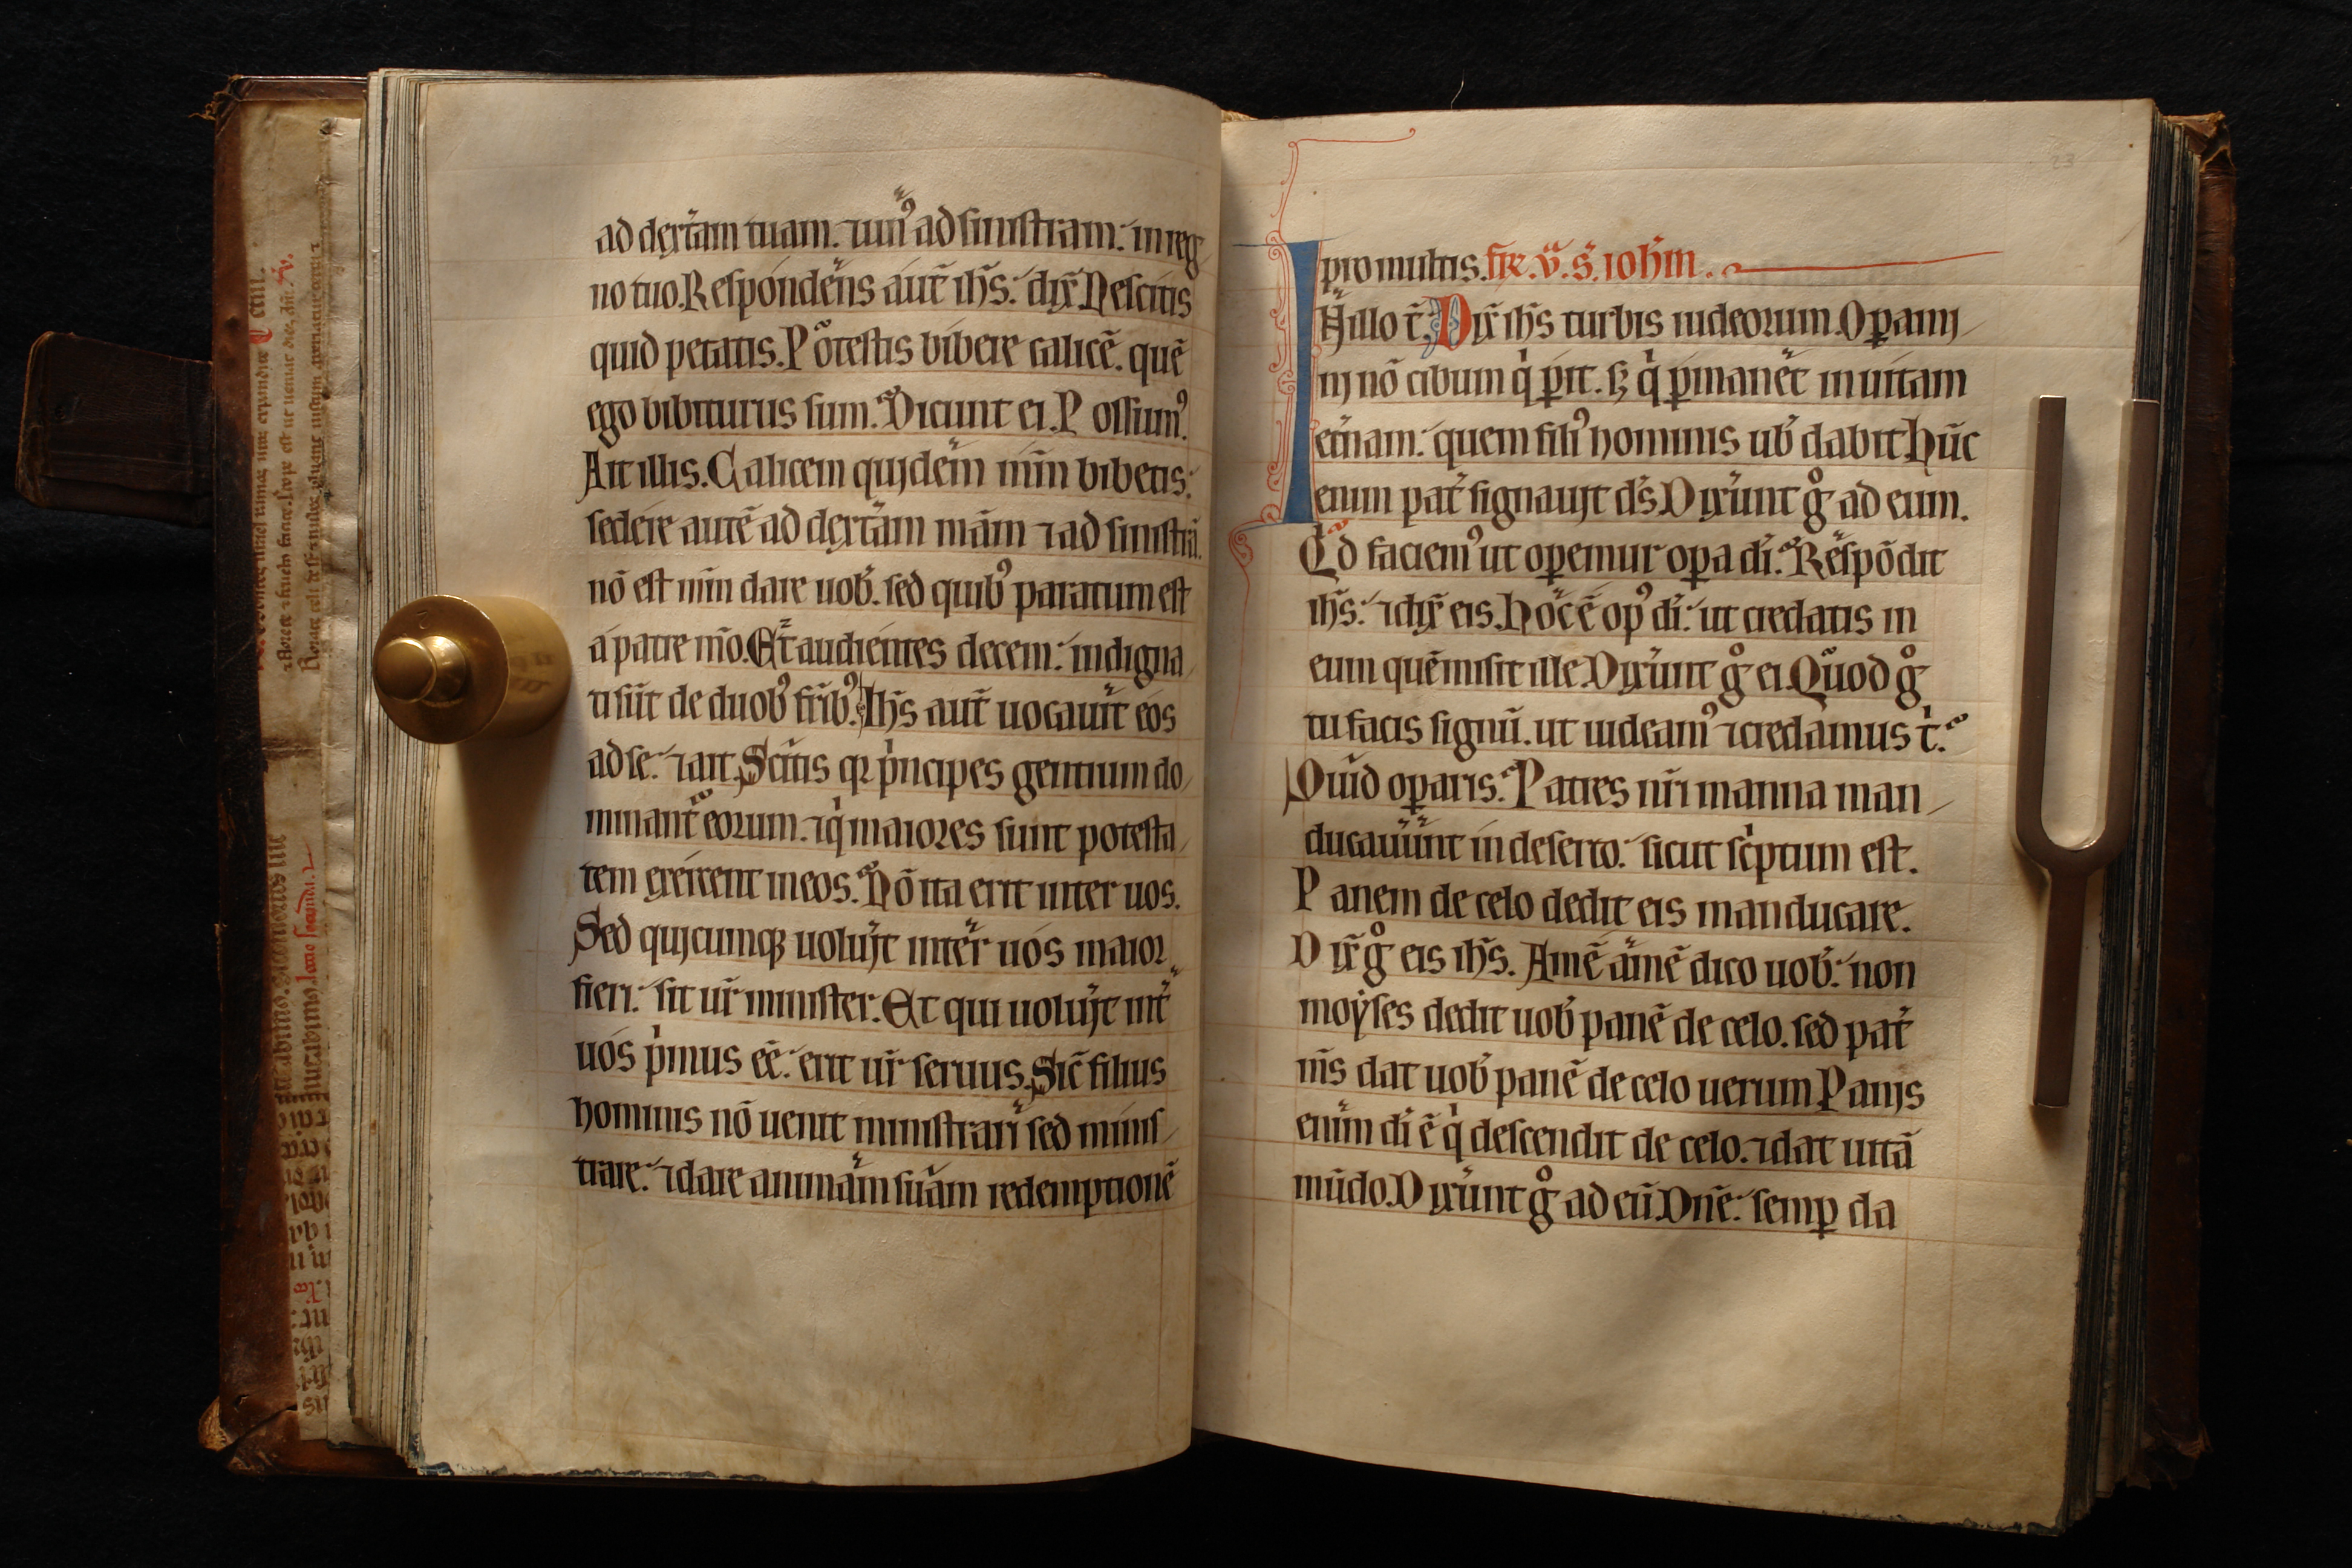 ad dext̄am tuam. ⁊ un᷒ ad sinistram: in reg
no tuo. Respondens aut̄ ih̄s: dix̄. Nescitis
quid petatis. Potestis bibere calicē. quē
ego bibiturus sum. Dicunt ei. Possum᷒.
Ait illis. Calicem quidem m̄m bibetis:
sedere autē ad dext̄am mām ⁊ ad sinistrā.
nō est m̄m dare uob̄. sed quib᷒ paratum est
a patre m̄o. Et audientes decem: indigna
ti sūt de duob᷒ fr̄ib᷒. Ih̄s aut̄ uocauit eos
ad se: ⁊ ait. Scitis qꝛ p̍ncipes gentium do
minant̄ eorum. ⁊ q̍ maiores sunt potesta
tem exercent in eos. Nō ita erit inter uos.
Sed quicumqꝫ uoluit inter uos maior
fieri: sit ur̄ minister. Et qui uoluit int̄
uos p̍mus eē: erit ur̄ seruus. Sic̄ filius
hominis nō uenit ministrari sed minis
trare: ⁊ dare animam suam redemptionē
pro multis. fr̄. v̄. s. ioh̄m.
In illo t̄. Dix̄ ih̄s turbis iudeorum. Oꝑami
ni nō cibum q̍ ꝑit. sꝫ q̍ ꝑmanet in uitam
et̄nam: quem fili᷒ hominis uob̄ dabit. hūc
enim pat̄ signauit d̄s. Dix̄unt gͦ ad eum.
Qd̄ faciem᷒ ut oꝑemur oꝑa di. Respōdit
ih̄s: ⁊ dix̄ eis. Hoc ē op᷒ di: ut credatis in
eum quē misit ille. Dix̄unt gͦ ei. Quod gͦ
tu facis signū. ut uideam᷒ ⁊ credamus t̍.
Quid oꝑaris. Patres nr̄i manna man
ducauunt in deserto: sicut sc̍ptum est.
Panem de celo dedit eis manducare.
Dix̄ gͦ eis ih̄s. Amē amē dico uob̄: non
moyses dedit uob̄ panē de celo. sed pat̄
m̄s dat uob̄ panē de celo uerum. Panis
enim di ē q̍ descendit de celo. ⁊ dat uitā
mūdo. Dix̄unt gͦ ad eū. Dn̄e: semꝑ da